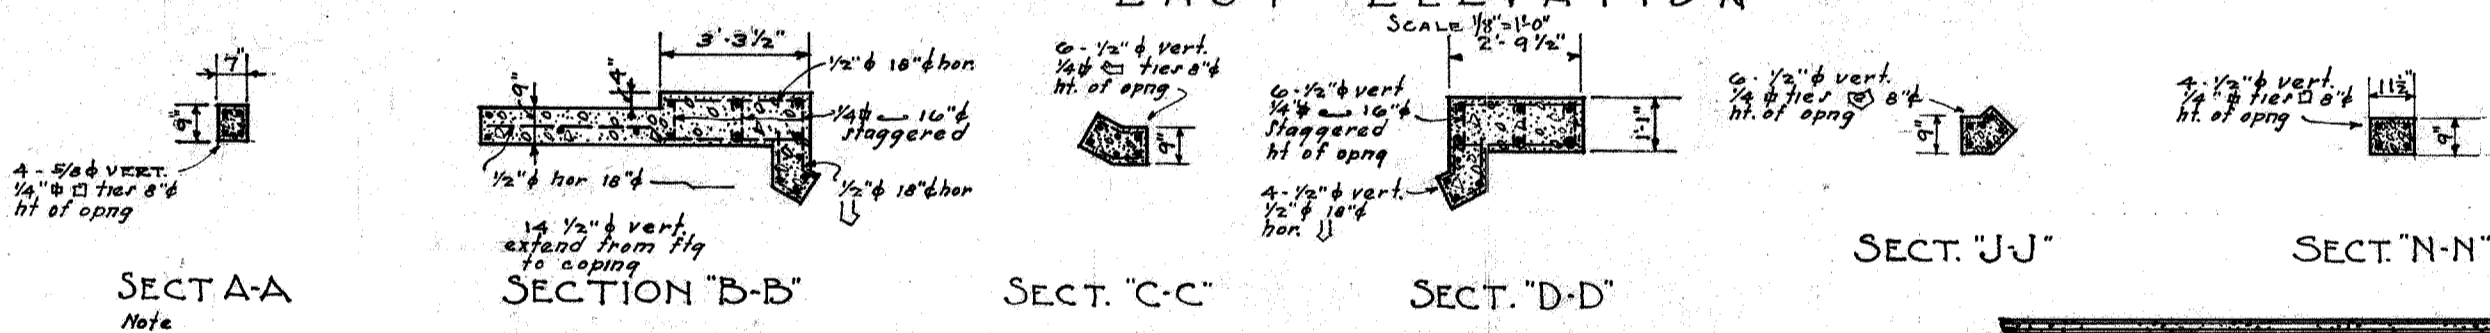 EAST ELEVATION
SCALE 1/8"=1'-0"
7"
9"
4 - 5/8 ϕ VERT.
1/4" ϕ □ ties 8" ¢
ht of opng
SECT A-A
Note
3'-3 1/2"
9"
4"
1/2" ϕ 18" ¢ hor.
1/4 ϕ 16" ¢
staggered
1/2" ϕ hor 18" ¢
1/2" ϕ 18" ¢ hor
14 1/2" ϕ vert.
extend from ftg
to coping
SECTION "B-B"
6 - 1/2" ϕ vert.
1/4 ϕ ties 8" ¢
ht. of opng
9"
SECT. "C-C"
2'-9 1/2"
6-1/2" ϕ vert
1/4" ϕ 16" ¢
staggered
ht of opng
1'-1"
4-1/2" ϕ vert.
1/2" ϕ 18" ¢
hor.
SECT. "D-D"
6 - 1/2" ϕ vert.
1/4 ϕ ties 8" ¢
ht. of opng
9"
SECT. "J-J"
4 - 1/2" ϕ vert.
1/4" ϕ ties □ 8" ¢
ht. of opng
11 1/2"
9"
SECT. "N-N"